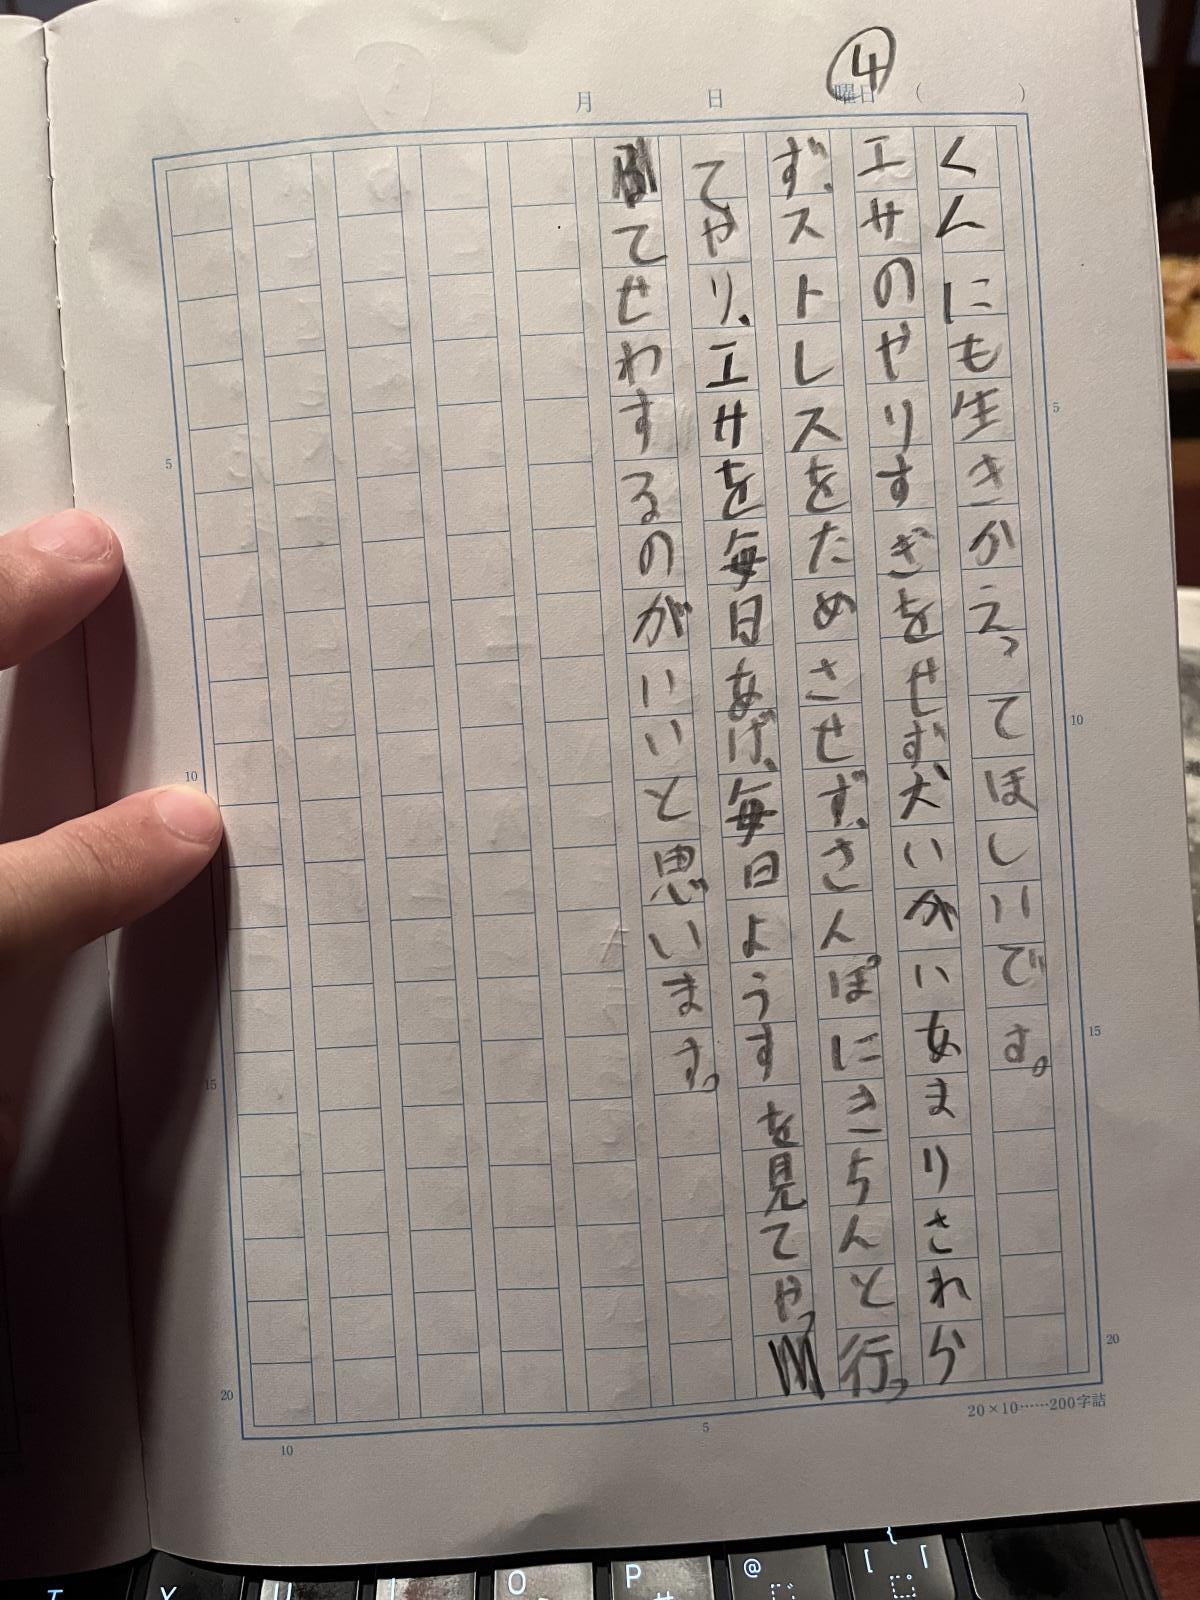 ④
月 日 曜日 ( )
くんにも生きかえってほしいです。
エサのやりすぎをせず犬いがいあまりさわら
ず、ストレスをためさせず、さんぽにきちんと行っ
てやり、エサを毎日あげ、毎日ようすを見てやっ
てせわするのがいいと思います。
5
10
15
20
5
10
15
20
5
10
20×10……200字詰
Y
U
I
O
P
@
{
[
「